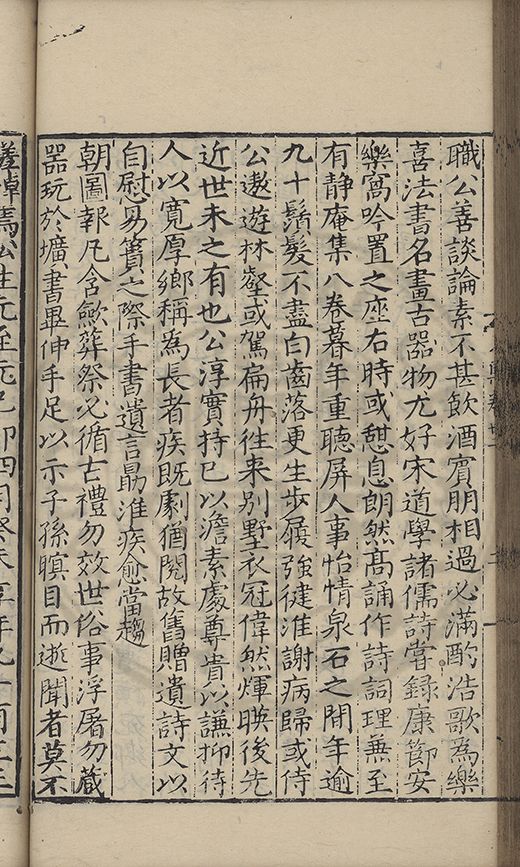 職公善談論素不甚飲酒賓朋相過必滿酌浩歌為樂
喜法書名畫古器物尤好宋道學諸儒詩嘗錄康節安
樂窩吟置之座右時或憇息朗然髙誦作詩詞理兼至
有静庵集八卷暮年重聽屏人事怡情泉石之間年逾
九十鬚髮不盡白齒落更生步履強健淮謝病歸或侍
公遨遊林壑或駕扁舟往来别墅衣冠偉然煇暎後先
近世未之有也公淳實持已以澹素處尊貴以謙抑待
人以寛厚鄉稱爲長者疾既劇猶閱故舊贈遺詩文以
自慰易簀之際手書遺言勗淮疾愈當趨
朝圖報凡含歛葬祭必循古禮勿效世俗事浮屠勿藏
器玩於壙書畢伸手足以示子孫瞑目而逝聞者莫不
焉公生元至元己卯四月